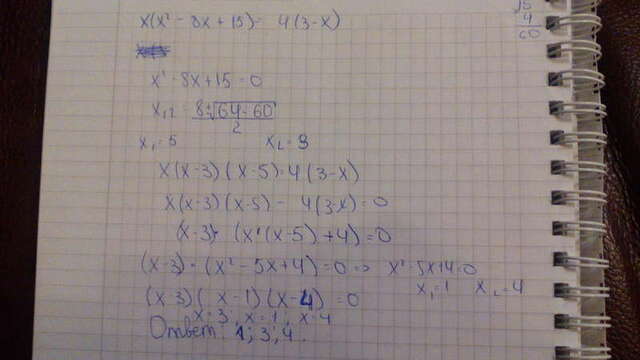 15
4
60
x(x² - 8x + 15) = 4(3-x)
x² - 8x + 15 = 0
x₁,₂ = 8±√64-60
2
x₁ = 5 x₂ = 3
x(x-3)(x-5) = 4(3-x)
x(x-3)(x-5) - 4(3-x) = 0
(x-3)·(x(x-5)+4) = 0
(x-3)·(x² - 5x + 4) = 0 => x² - 5x + 4 = 0
x₁ = 1 x₂ = 4
(x-3)(x-1)(x-4) = 0
x = 3, x = 1, x = 4
Ответ: 1; 3; 4.